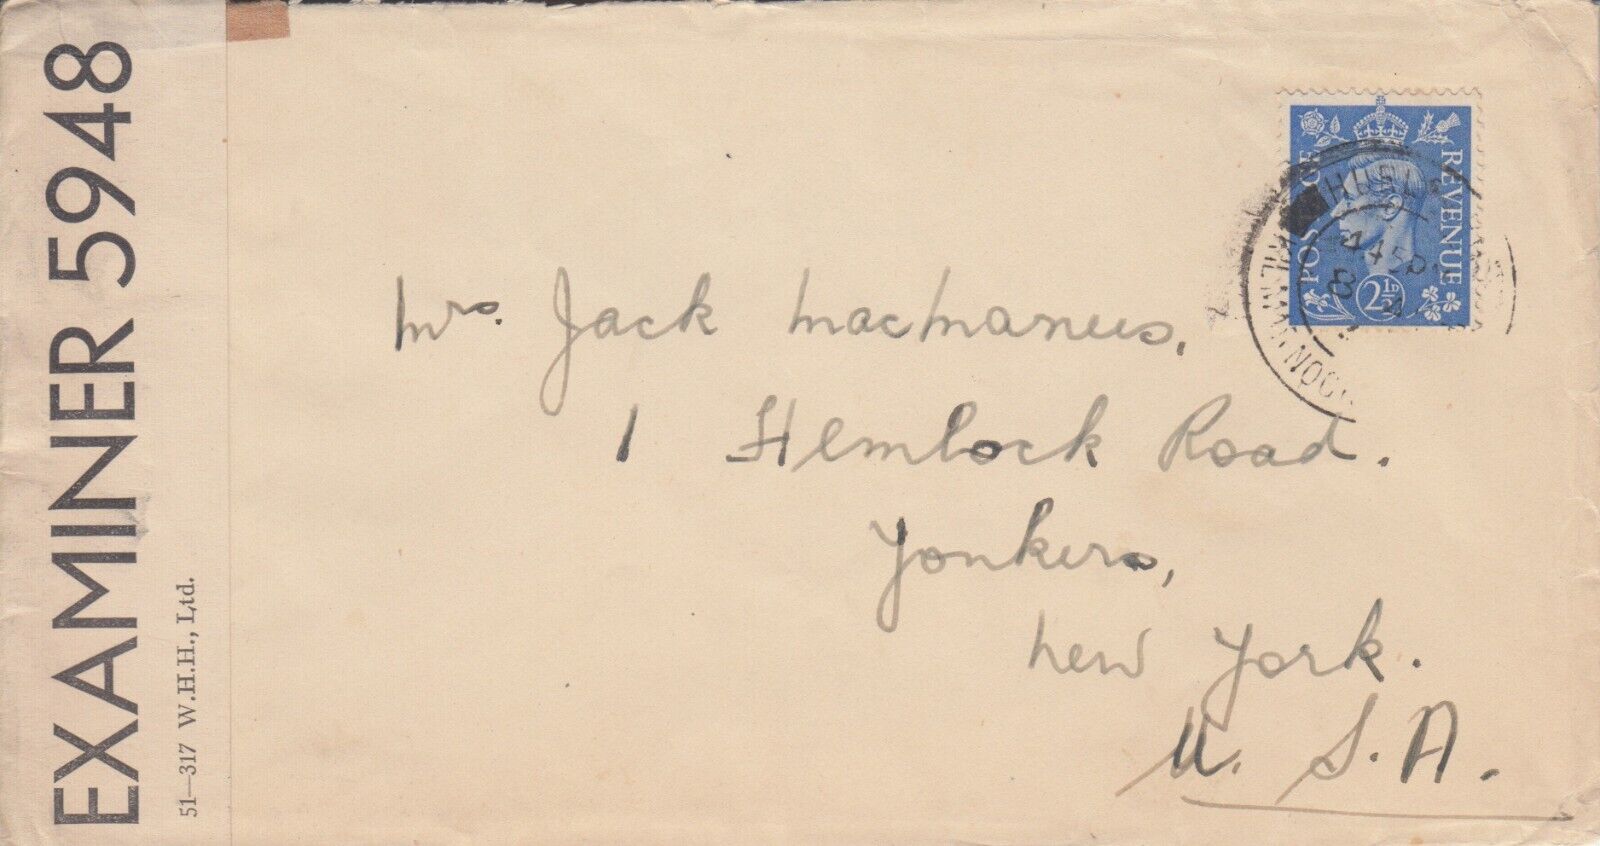 EXAMINER 5948
51—317 W.H.H., Ltd.
REVENUE
2½D
Mrs. Jack MacManus,
1 Hemlock Road.
Yonkers,
New York.
U. S. A.